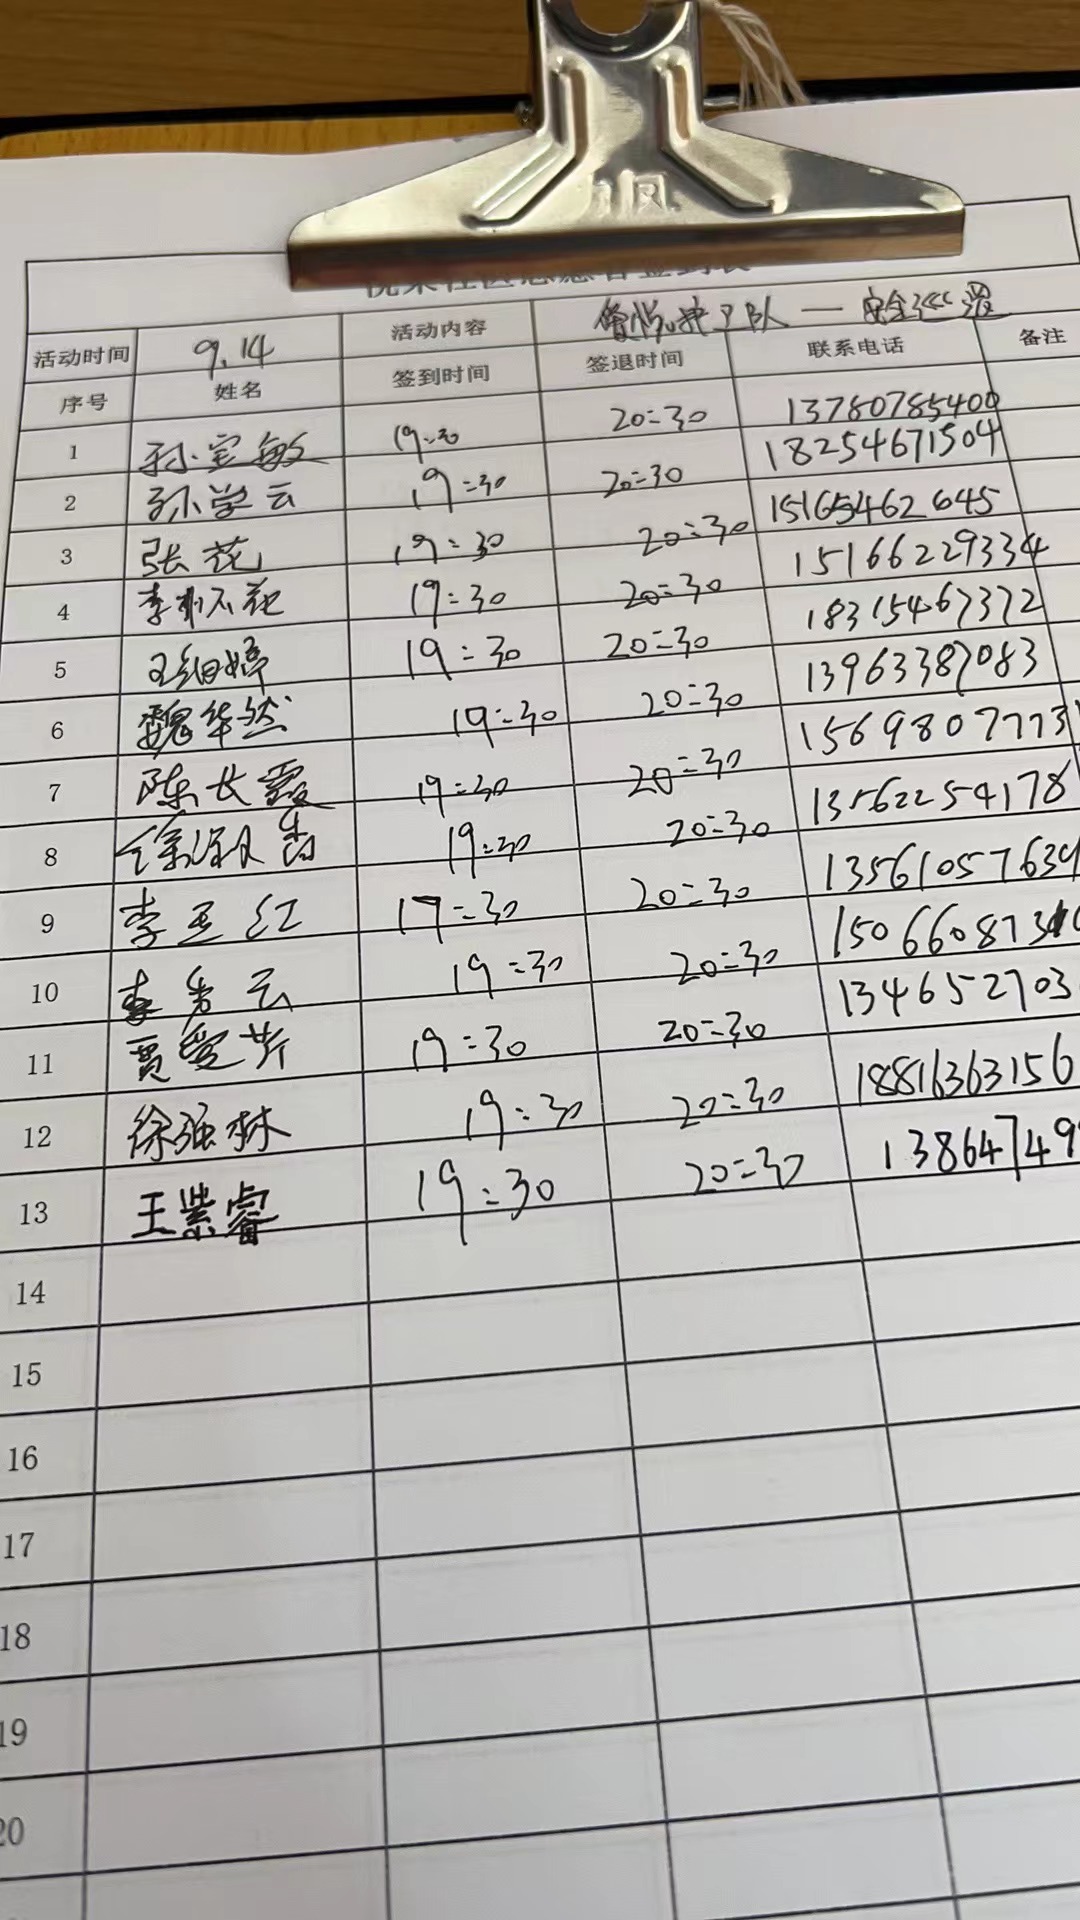 活动时间 9.14 活动内容 安全巡逻
序号 姓名 签到时间 签退时间 联系电话 备注
1 孙宝敏 19:30 20:30 13780785400
2 孙学云 19:30 20:30 18254671504
3 张花 19:30 20:30 15165462645
4 李 花 19:30 20:30 15166229334
5 王 婷 19:30 20:30 18315467372
6 魏华然 19:30 20:30 13963387083
7 陈长霞 19:30 20:30 15698077731
8 徐淑香 19:30 20:30 13562254178
9 李玉红 19:30 20:30 1356105763
10 李秀云 19:30 20:30 150660873
11 贾爱芹 19:30 20:30 134652703
12 徐强林 19:30 20:30 18816363156
13 王紫睿 19:30 20:30 13864749
14
15
16
17
18
19
20